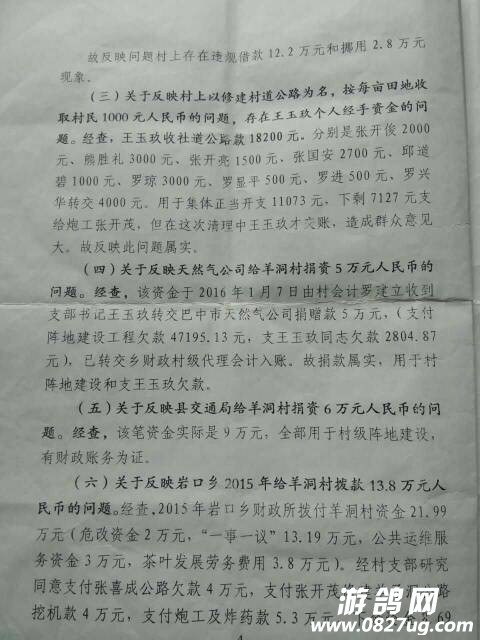 故反映问题村上存在违规借款 12.2 万元和挪用 2.8 万元
现象。
（三）关于反映村上以修建村道公路为名，按每亩田地收
取村民 1000 元人民币的问题，存在王玉玖个人经手资金的问
题。经查，王玉玖收社道公路款 18200 元。分别是张开俊 2000
元、熊胜礼 3000 元、张开亮 1500 元、张国安 2700 元、邱道
碧 1000 元、罗琼 3000 元、罗显平 500 元、罗进 500 元、罗兴
华转交 4000 元。用于集体正当开支 11073 元，下剩 7127 元支
给炮工张开茂，但在这次清理中王玉玖才交账，造成群众意见
大。故反映此问题属实。
（四）关于反映天然气公司给羊洞村捐资 5 万元人民币的
问题。经查，该资金于 2016 年 1 月 7 日由村会计罗建立收到
支部书记王玉玖转交巴中市天然气公司捐赠款 5 万元，（支付
阵地建设工程欠款 47195.13 元，支王玉玖同志欠款 2804.87
元），已转交乡财政村级代理会计入账。故捐款属实，用于村
阵地建设和支王玉玖欠款。
（五）关于反映县交通局给羊洞村捐资 6 万元人民币的问
题。经查，该笔资金实际是 9 万元，全部用于村级阵地建设，
有财政账务为证。
（六）关于反映岩口乡 2015 年给羊洞村拨款 13.8 万元人
民币的问题。经查，2015 年岩口乡财政所拨付羊洞村资金 21.99
万元（危改资金 2 万元，“一事一议”13.19 万元，公共运维服
务资金 3 万元，茶叶发展劳务费用 3.8 万元）。经村支部研究
同意支付张喜成公路欠款 4 万元，支付张开茂
挖机款 4 万元，支付炮工及炸药款 5.3 万元，下 8.69
游鸽网
www.0827ug.com